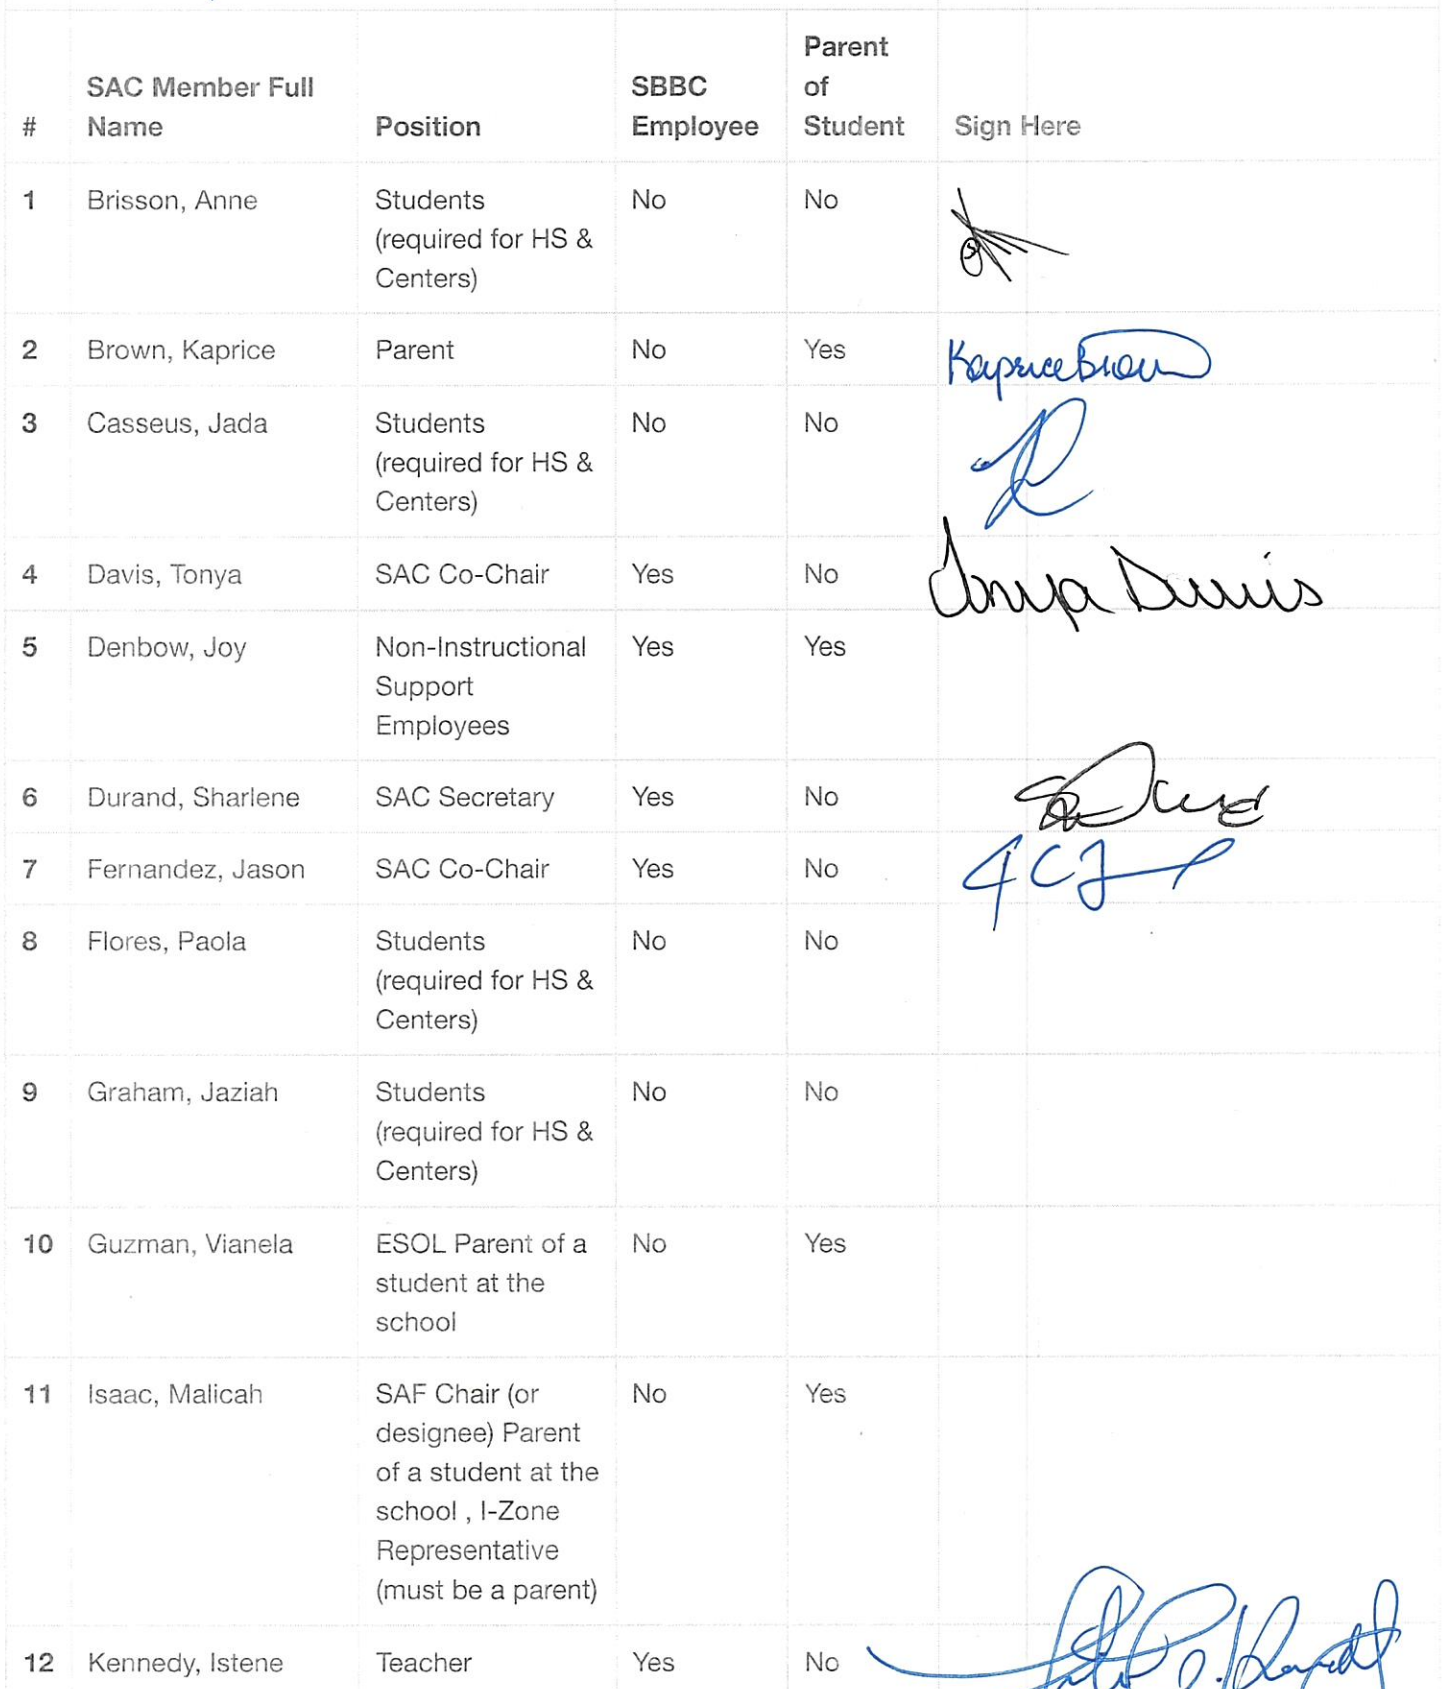 # SAC Member Full Name Position SBBC Employee Parent of Student Sign Here
1 Brisson, Anne Students No No
(required for HS &
Centers)
2 Brown, Kaprice Parent No Yes Kaprice Brown
3 Casseus, Jada Students No No
(required for HS &
Centers)
4 Davis, Tonya SAC Co-Chair Yes No Tonya Davis
5 Denbow, Joy Non-Instructional Yes Yes
Support
Employees
6 Durand, Sharlene SAC Secretary Yes No
7 Fernandez, Jason SAC Co-Chair Yes No
8 Flores, Paola Students No No
(required for HS &
Centers)
9 Graham, Jaziah Students No No
(required for HS &
Centers)
10 Guzman, Vianela ESOL Parent of a No Yes
student at the
school
11 Isaac, Malicah SAF Chair (or No Yes
designee) Parent
of a student at the
school , I-Zone
Representative
(must be a parent)
12 Kennedy, Istene Teacher Yes No